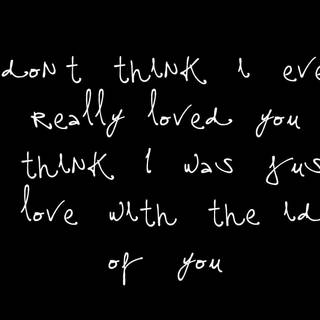 don t think i eve
really loved you
think i was jus
love with the id
of you